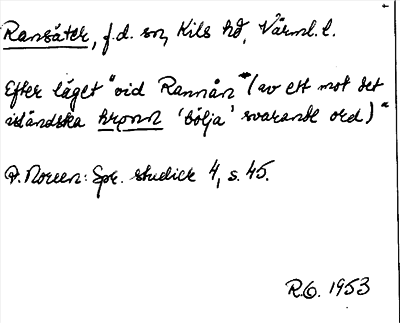 Ransäter, f.d. sn, Kils hd, Värml. l.
Efter läget "vid Rannån" (av ett mot det
isländska hrǫnn 'bölja' svarande ord)"
A. Noreen: Spr. studier 4, s. 45.
R.G. 1953